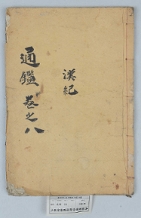 通鑑 卷之八
漢紀